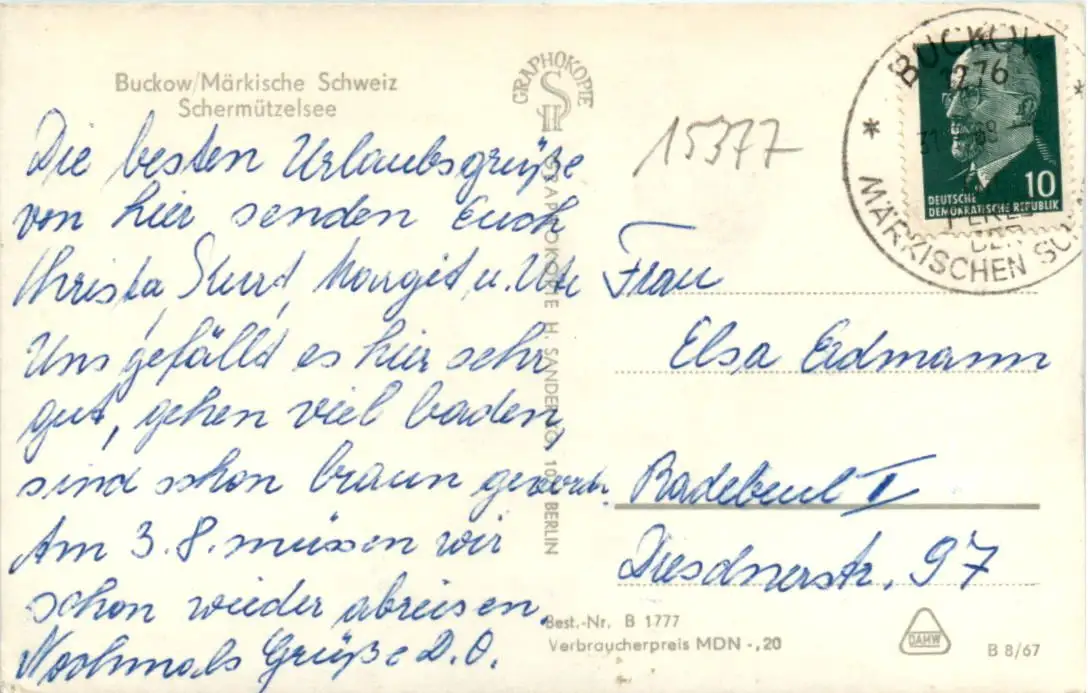 Buckow/Märkische Schweiz
Schermützelsee
Die besten Urlaubsgrüße
von hier senden Euch
Christa, Kurt, Margit u. Ute
Uns gefällt es hier sehr
gut, gehen viel baden,
sind schon braun geword.
Am 3.8. müssen wir
schon wieder abreisen.
Nochmals Grüße D.O.
GRAPHOKOPIE
GRAPHOKOPIE H. SANDER KG, BERLIN
15377
BUCKOW
1276
31. 68
PERLE
DER
MÄRKISCHEN
10
DEUTSCHE
DEMOKRATISCHE REPUBLIK
Frau
Elsa Erdmann
Radebeul I
Dresdnerstr. 97
Best.-Nr. B 1777
Verbraucherpreis MDN -,20
DAMW
B 8/67